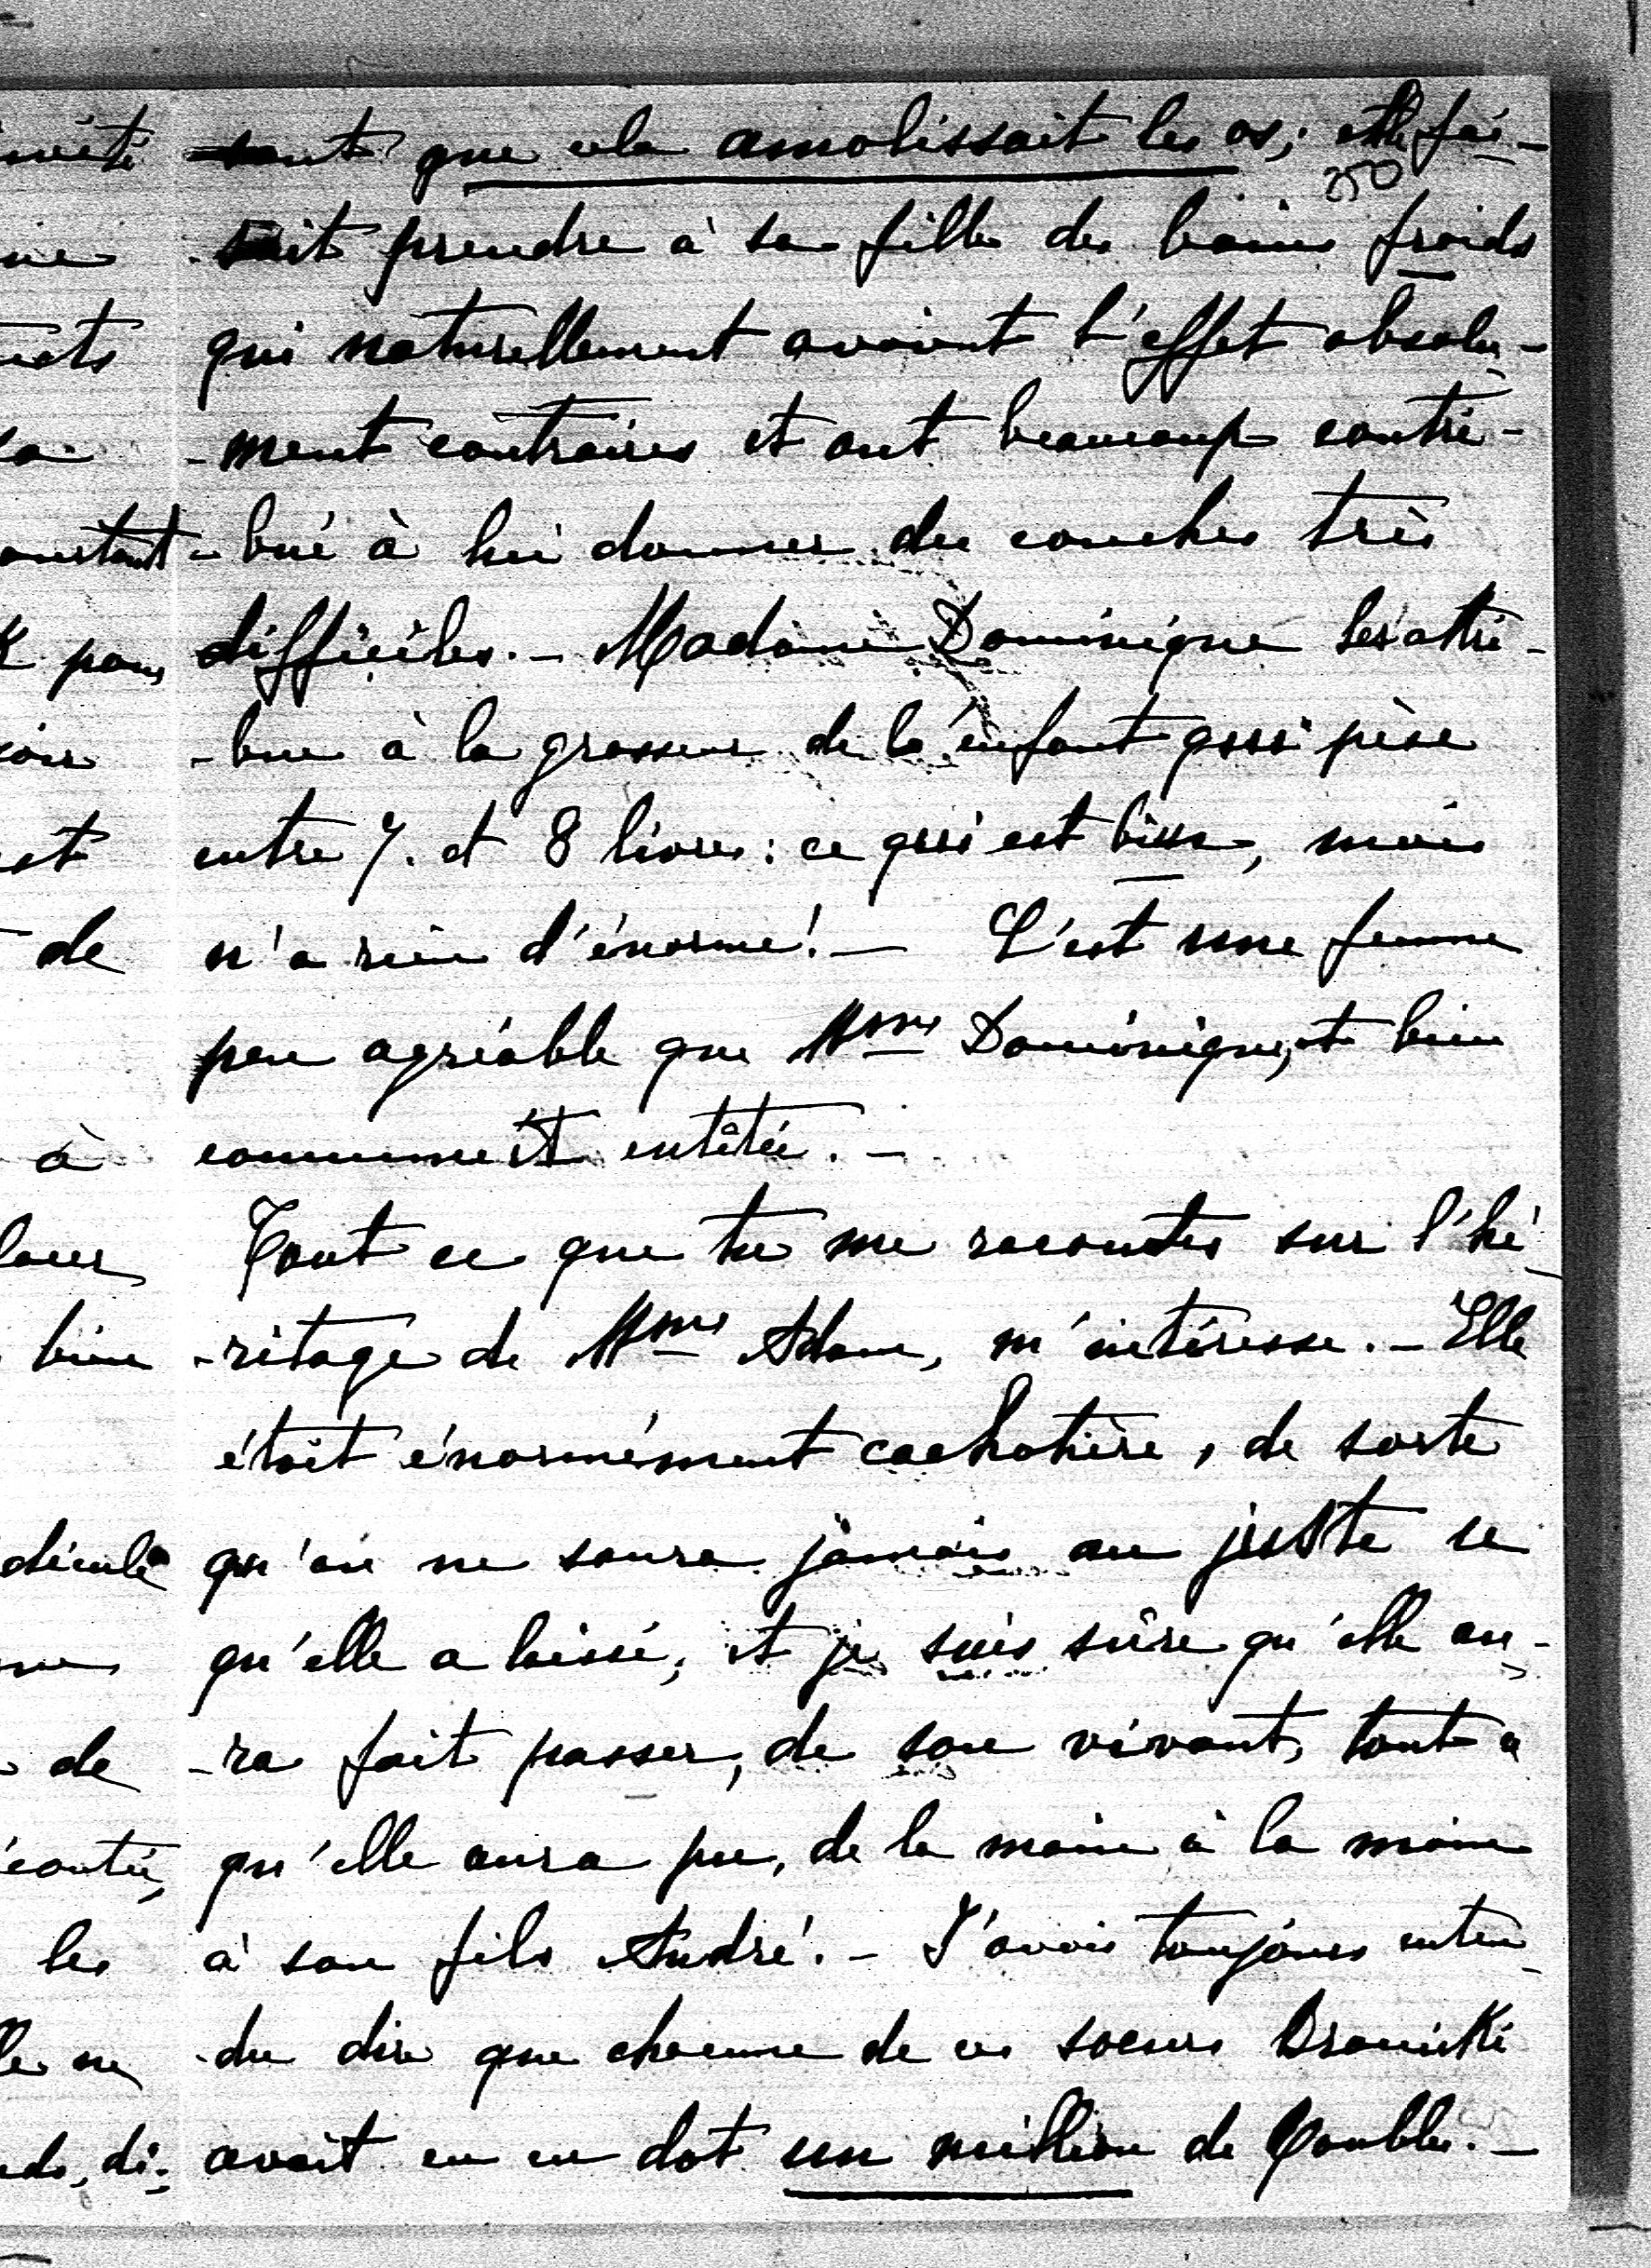 sant que cela amolissait les os; elle fai-
250
-sait prendre à sa fille des bains froids
qui naturellement avaient l'effet absolu-
-ment contraires et ont beaucoup contri-
-bué à lui donner des couches très
difficiles. - Madame Dominique les attri-
-bue à la grosseur de l'enfant qui pèse
entre 7. et 8 livres: ce qui est bien, mais
n'a rien d'énorme! - C'est une femme
peu agréable que Mme Dominique, et bien
commune et entêtée. -
Tout ce que tu me racontes sur l'hé-
-ritage de Mme Adam, m'intéresse. - Elle
était énormément cachotière, de sorte
qu'on ne saura jamais au juste ce
qu'elle a laissé, et je suis sûre qu'elle au-
-ra fait passer, de son vivant, tout ce
qu'elle aura pu, de la main à la main
à son fils André. - J'avais toujours enten-
-du dire que chacune de ces soeurs Branicki
avait eu en dot un million de Roubles. -